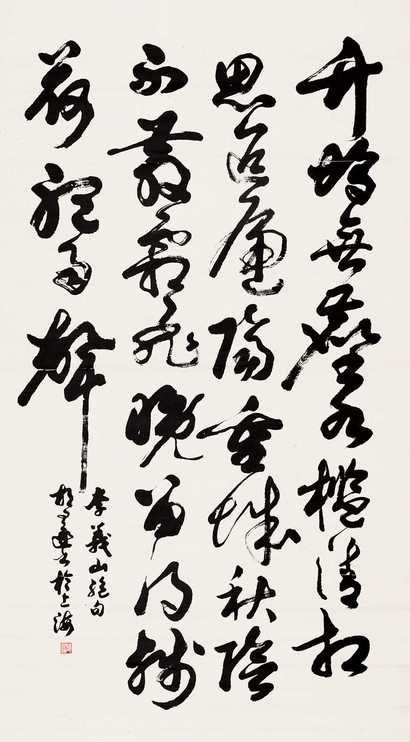 竹塢無塵水檻清相
思迢遞隔重城秋陰
不散霜飛晚留得残
荷聽雨聲
李義山絶句
胡問遂書於上海